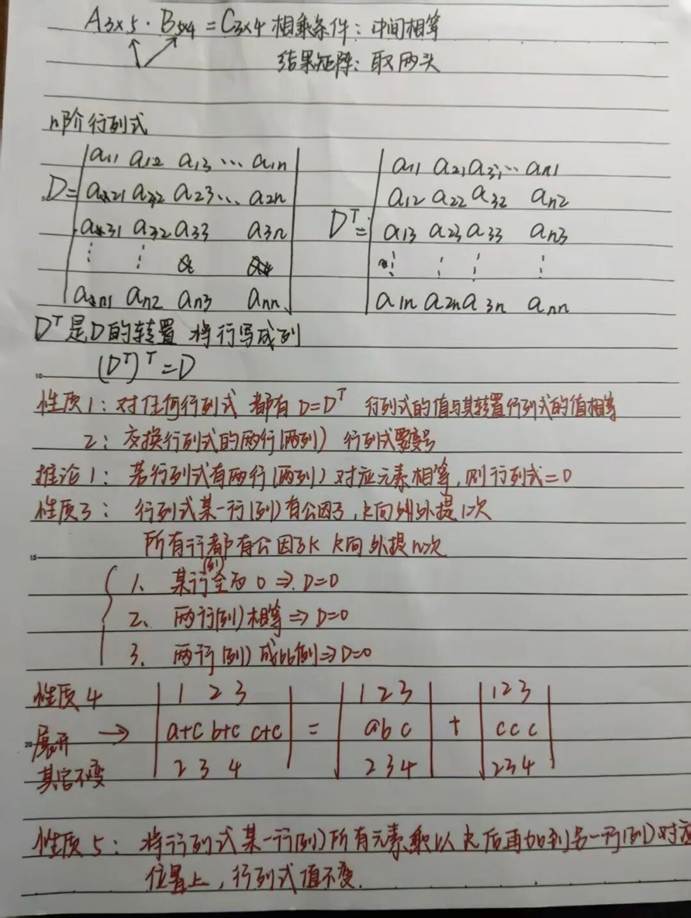 A₃ₓ₅ · B₅ₓ₄ = C₃ₓ₄ 相乘条件：中间相等
结果矩阵：取两头
n阶行列式
D = | a₁₁ a₁₂ a₁₃ … a₁ₙ |
| a₂₁ a₂₂ a₂₃ … a₂ₙ |
| a₃₁ a₃₂ a₃₃ a₃ₙ |
| ⋮ ⋮ |
| aₙ₁ aₙ₂ aₙ₃ aₙₙ |
Dᵀ = | a₁₁ a₂₁ a₃₁ … aₙ₁ |
| a₁₂ a₂₂ a₃₂ aₙ₂ |
| a₁₃ a₂₃ a₃₃ aₙ₃ |
| ⋮ ⋮ ⋮ ⋮ |
| a₁ₙ a₂ₙ a₃ₙ aₙₙ |
Dᵀ是D的转置 将行写成列
(Dᵀ)ᵀ = D
性质1：对任何行列式 都有 D=Dᵀ 行列式的值与其转置行列式的值相等
2：交换行列式的两行(两列) 行列式要变号
推论1：若行列式有两行(两列)对应元素相等，则行列式=0
性质3：行列式某一行(列)有公因子，k向外提1次
所有行都有公因子k k向外提n次
1、某行(列)全为0 ⇒ D=0
2、两行(列)相等 ⇒ D=0
3、两行(列)成比例 ⇒ D=0
性质4
展开 →
其它不变
| 1 2 3 | = | 1 2 3 | + | 1 2 3 |
| a+c b+c c+c | | a b c | | c c c |
| 2 3 4 | | 2 3 4 | | 2 3 4 |
性质5：将行列式某一行(列)所有元素乘以k后再加到另一行(列)对应
位置上，行列式值不变.